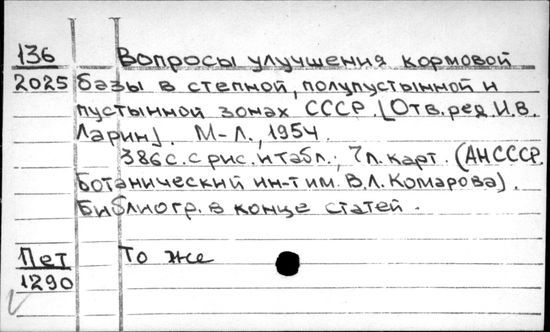 136 Вопросы улучшения кормовой
2025 базы в степной, полупустынной и
пустынной зонах СССР. [Отв. ред. И.В.
Ларин]. М-Л., 1954.
386с. с рис. и табл., 7 л. карт. (АН СССР.
Ботанический ин-т им. В.Л. Комарова).
Библиогр. в конце статей.
Пет То же
1290